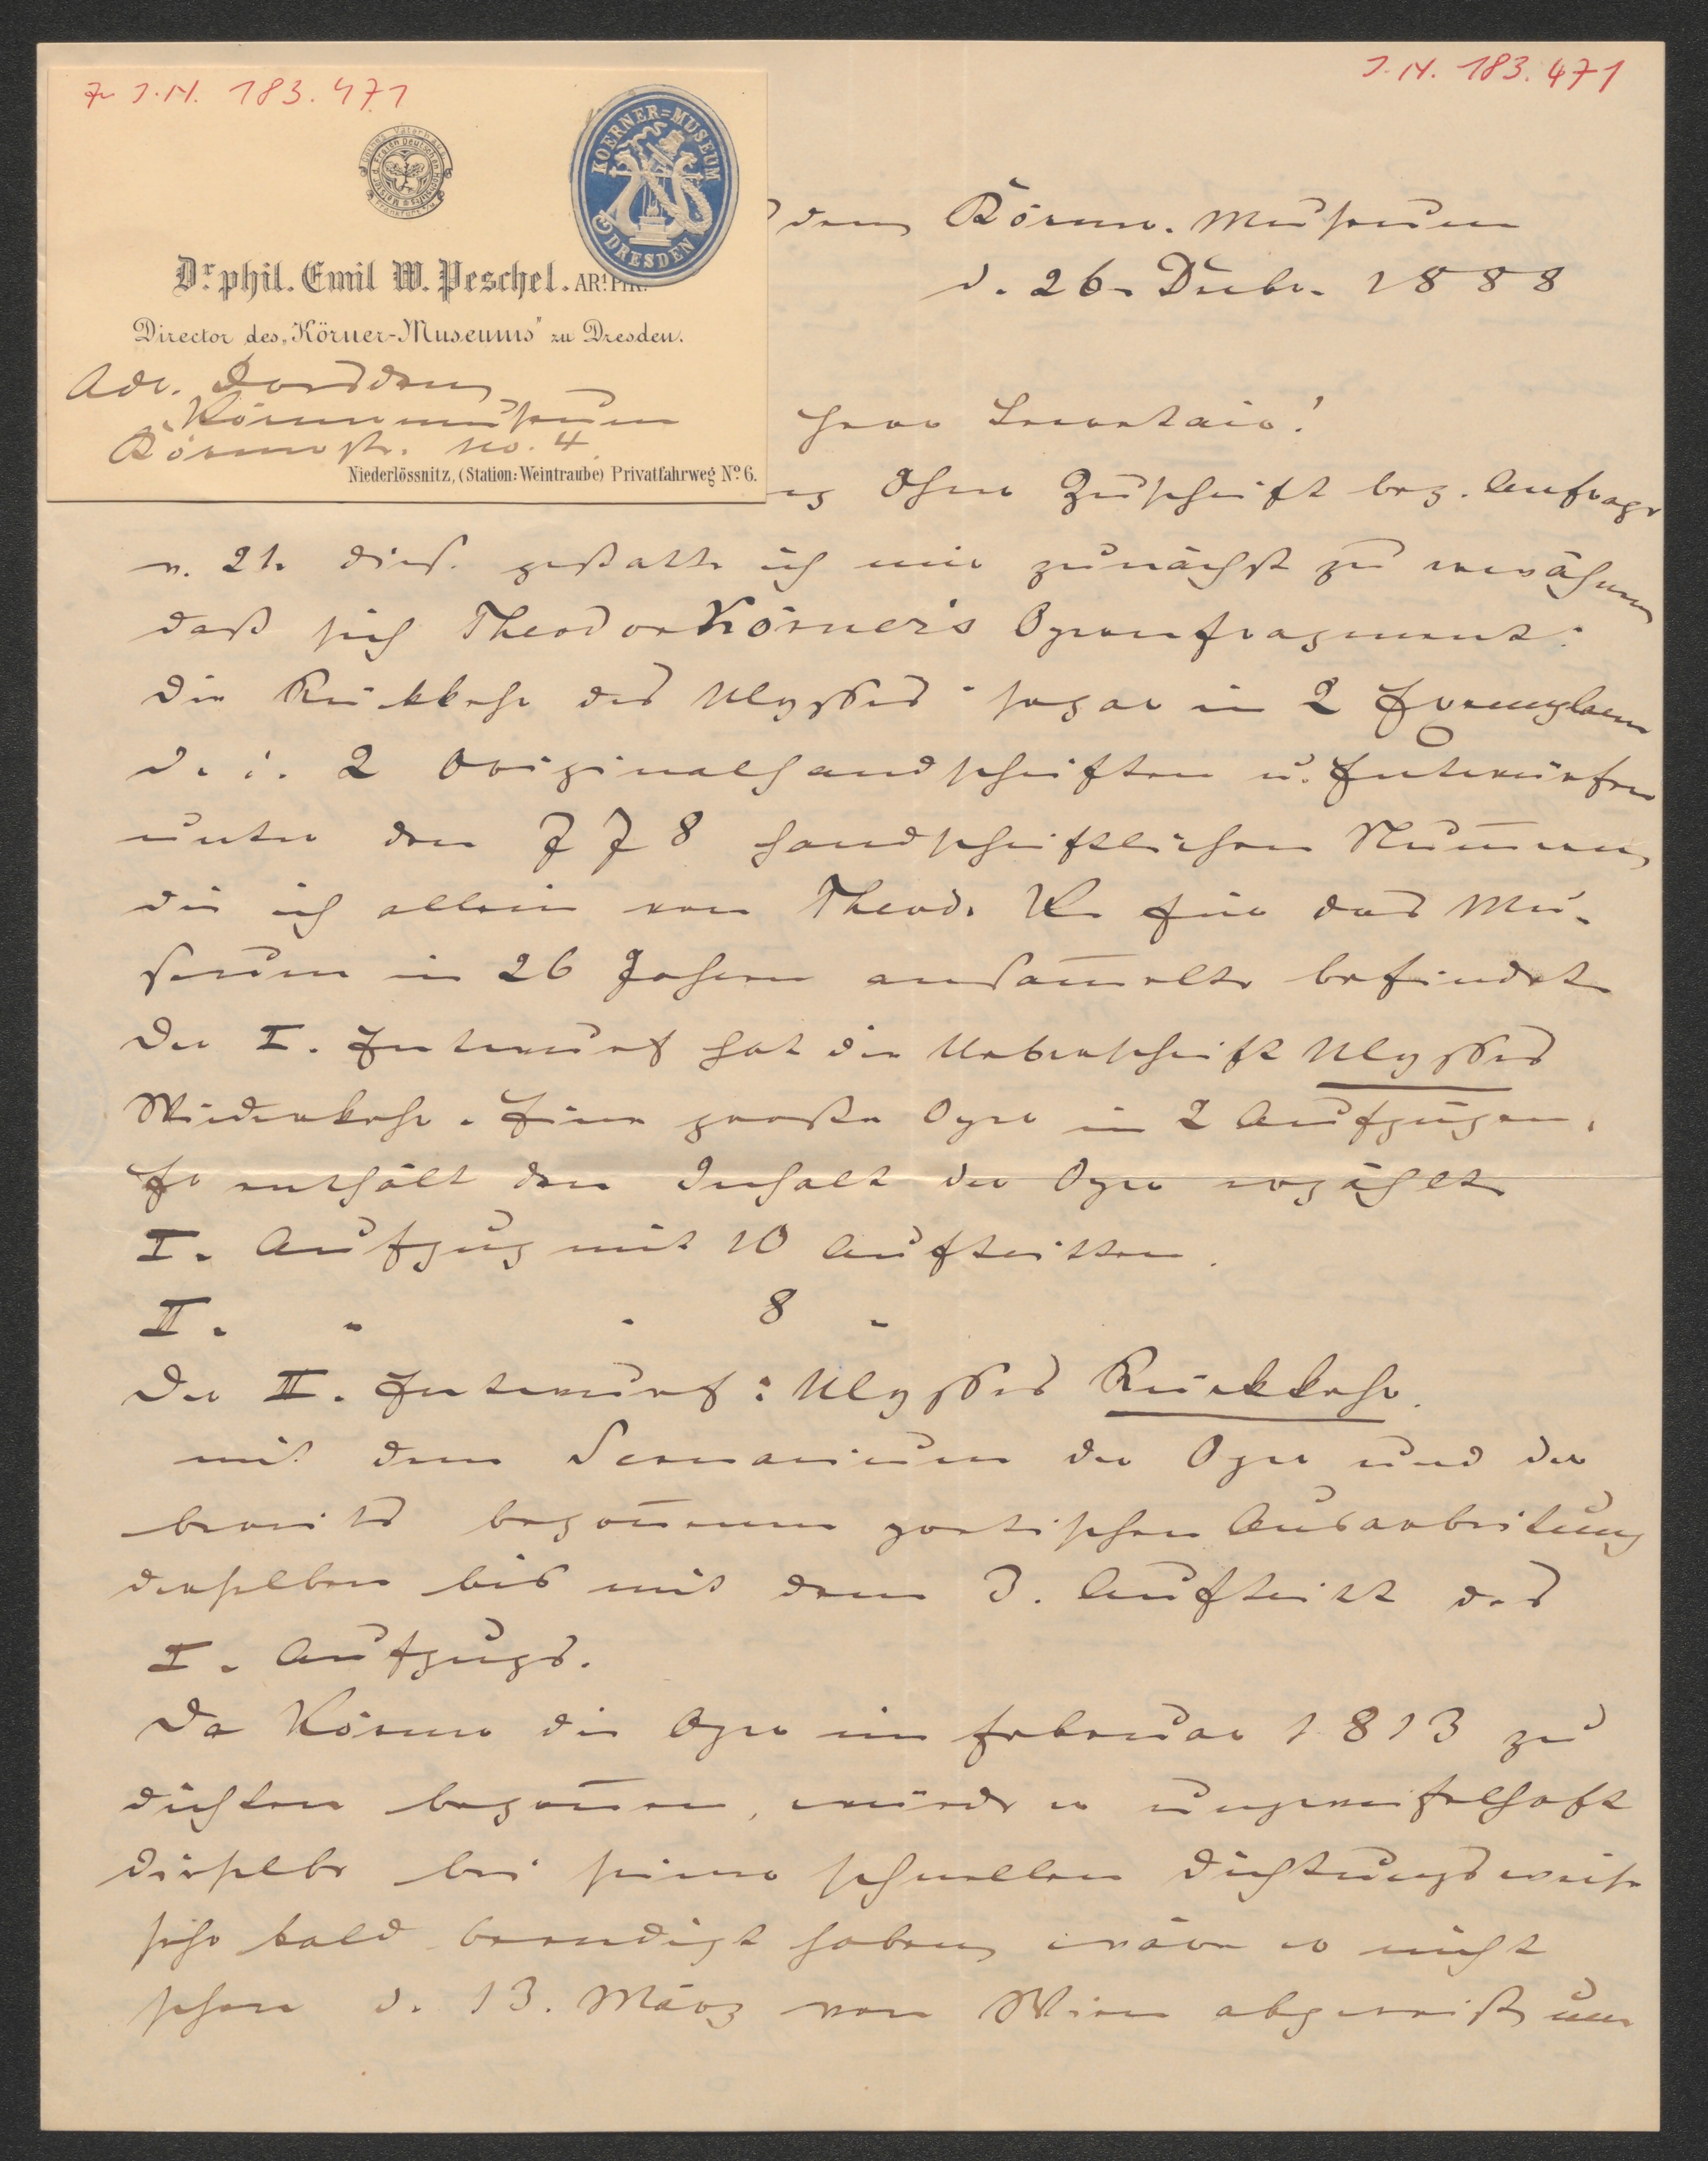 zu I.N. 183.471
I.N. 183.471
KOERNER=MUSEUM
DRESDEN
Dr. phil. Emil W. Peschel.
Director des „Körner-Museums" zu Dresden.
Adr. Dresden
Körnermuseum
Körnerstr. No. 4.
Niederlössnitz, (Station: Weintraube) Privatfahrweg No. 6.
den Körner. Museum
d. 26. Decbr. 1888
Herr Secretair!
Ihrer Zuschrift bez. Anfrage
v. 21. dies. gestatte ich mir zunächst zu erwähnen
daß sich Theodor Körner's Opernfragment:
Die Rückkehr des Ulysses" sogar in 2 Exemplaren
d. i. 2 Originalhandschriften u. Entwürfen
unter den 778 handschriftlichen Nummern
die ich allein von Theod. K. für das Mu-
seum in 26 Jahren ansammelte befindet
Der I. Entwurf hat die Ueberschrift Ulysses
Wiederkehr. Eine große Oper in 2 Aufzügen.
Er enthält den Inhalt der Oper erzählt
I. Aufzug mit 10 Auftritten.
II. " " 8 "
Der II. Entwurf: Ulysses Rückkehr.
mit dem Scenarium der Oper und der
bereits begonnenen poetischen Ausarbeitung
derselben bis mit dem 3. Auftritt des
I. Aufzugs.
Da Körner die Oper im Februar 1813 zu
dichten begonnen, würde er unzweifelhaft
dieselbe bei seiner schnellen Dichtungsweise
sehr bald beendigt haben, wäre er nicht
schon d. 13. März von Wien abgereist um